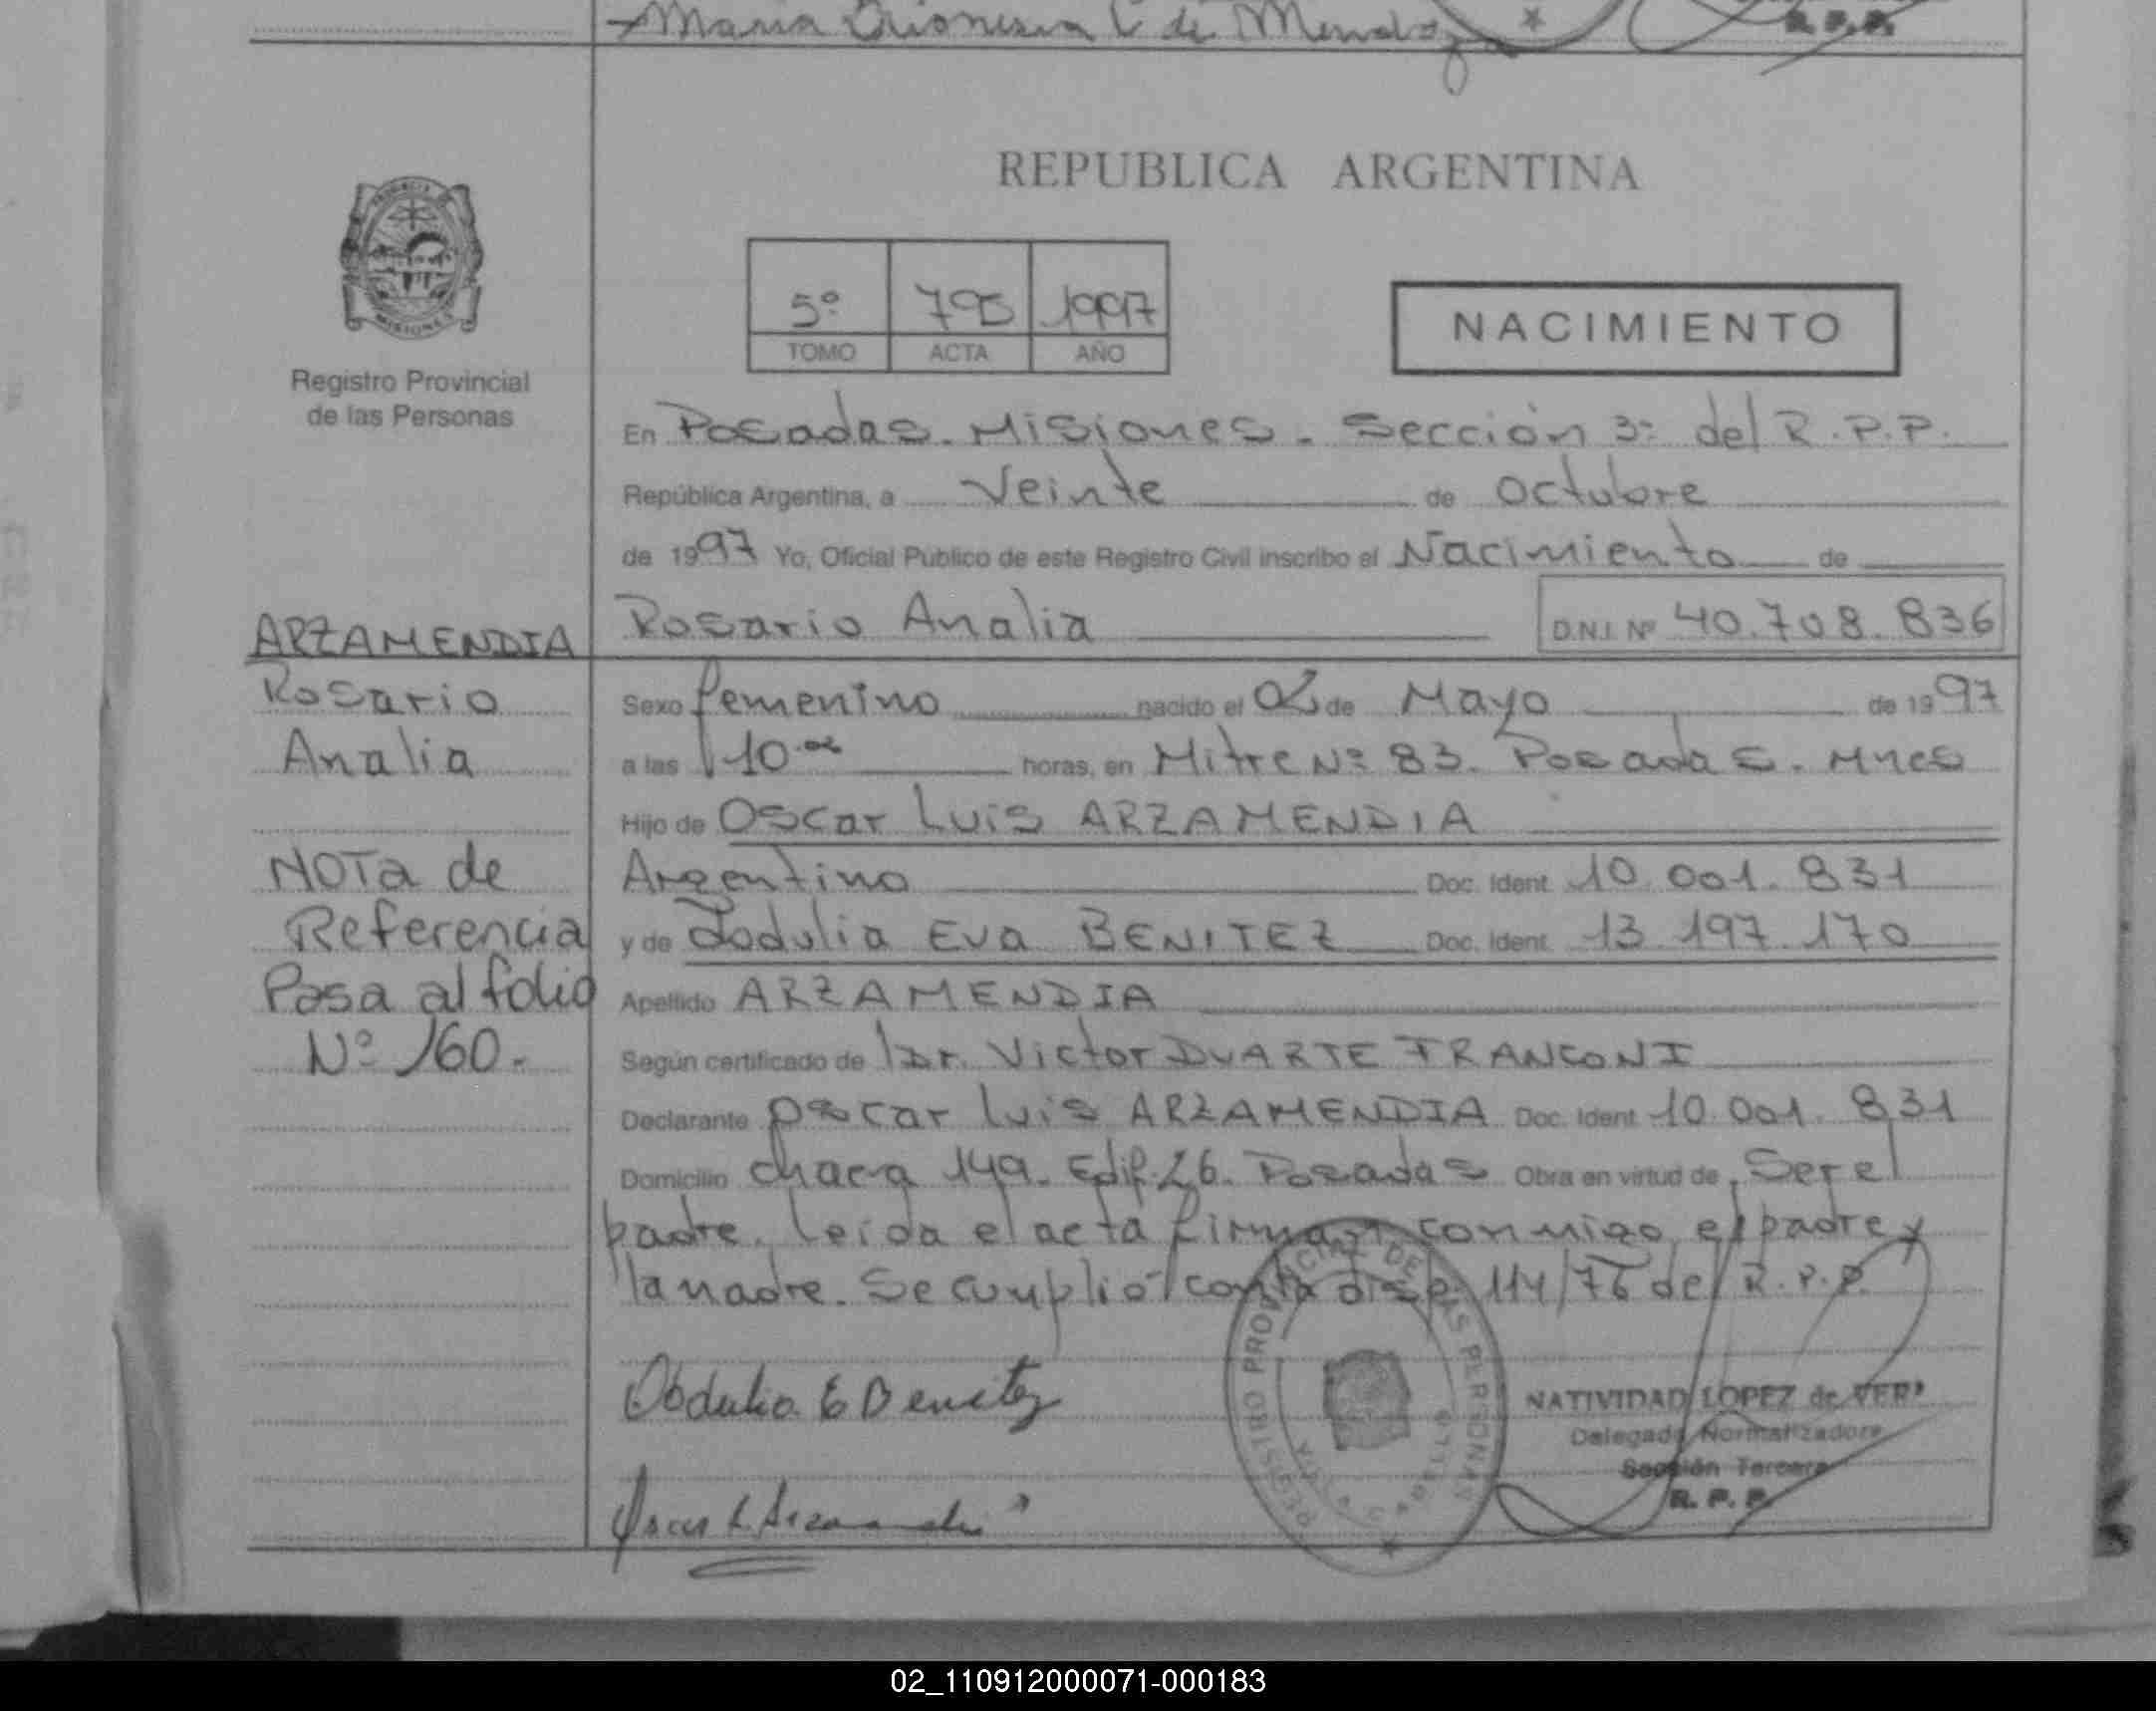 Maria Dionisia C de Mendoz
R.P.P.
REPUBLICA ARGENTINA
5º 795 1997
TOMO ACTA AÑO
NACIMIENTO
Registro Provincial
de las Personas
En Posadas. Misiones. Sección 3ª del R.P.P.
República Argentina, a Veinte de Octubre
de 1997 Yo, Oficial Público de este Registro Civil inscribo el Nacimiento de
Rosario Analia D.N.I. Nº 40.708.836
ARZAMENDIA
Rosario
Analia
NOTA de
Referencia
Pasa al folio
Nº 160.
Sexo femenino nacido el 02 de Mayo de 1997
a las 10 horas, en Mitre Nº 83. Posadas. Mnes
Hijo de Oscar Luis ARZAMENDIA
Argentino Doc. Ident. 10.001.831
y de Eva BENITEZ Doc. Ident. 13.197.170
Apellido ARZAMENDIA
Según certificado de Dr. Victor DUARTE FRANCONI
Declarante Oscar Luis ARZAMENDIA Doc. Ident 10.001.831
Domicilio chacra 149. Edif. 26. Posadas Obra en virtud de Ser el
padre. Leida el acta firman conmigo el padre y
la madre. Se cumplió con la disp. 114/76 del R.P.P.
Obdulia E Benitez
REGISTRO PROVINCIAL DE LAS PERSONAS
NATIVIDAD LOPEZ de VERA
Delegada Normalizadora
Sección Tercera
R.P.P.
02_110912000071-000183